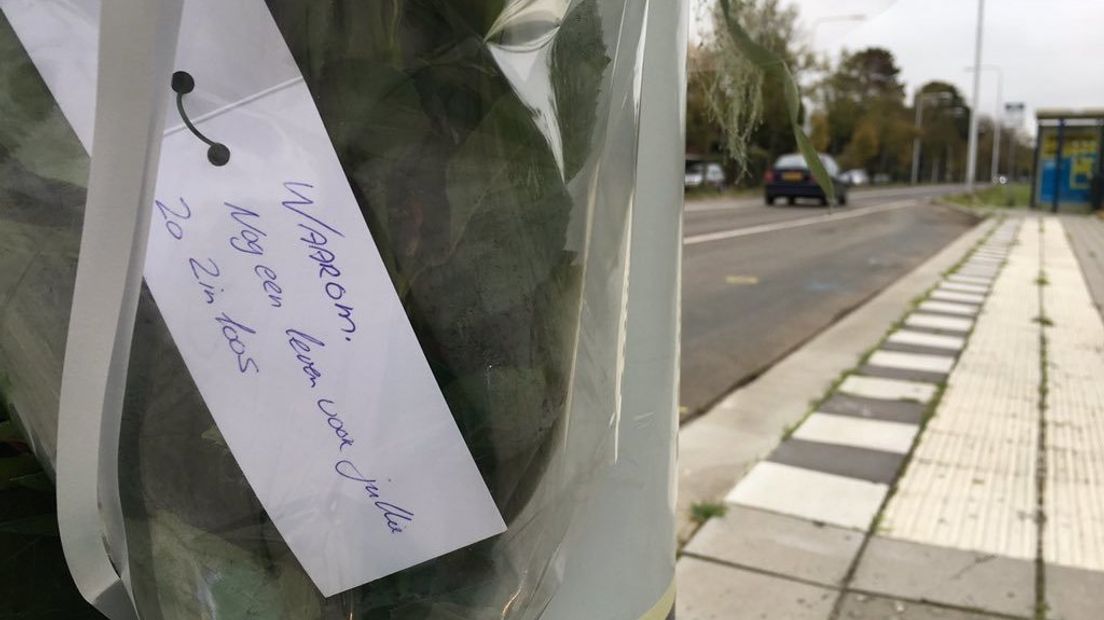 WAAROM.
Nog een leven voor jullie
Zo Zinloos